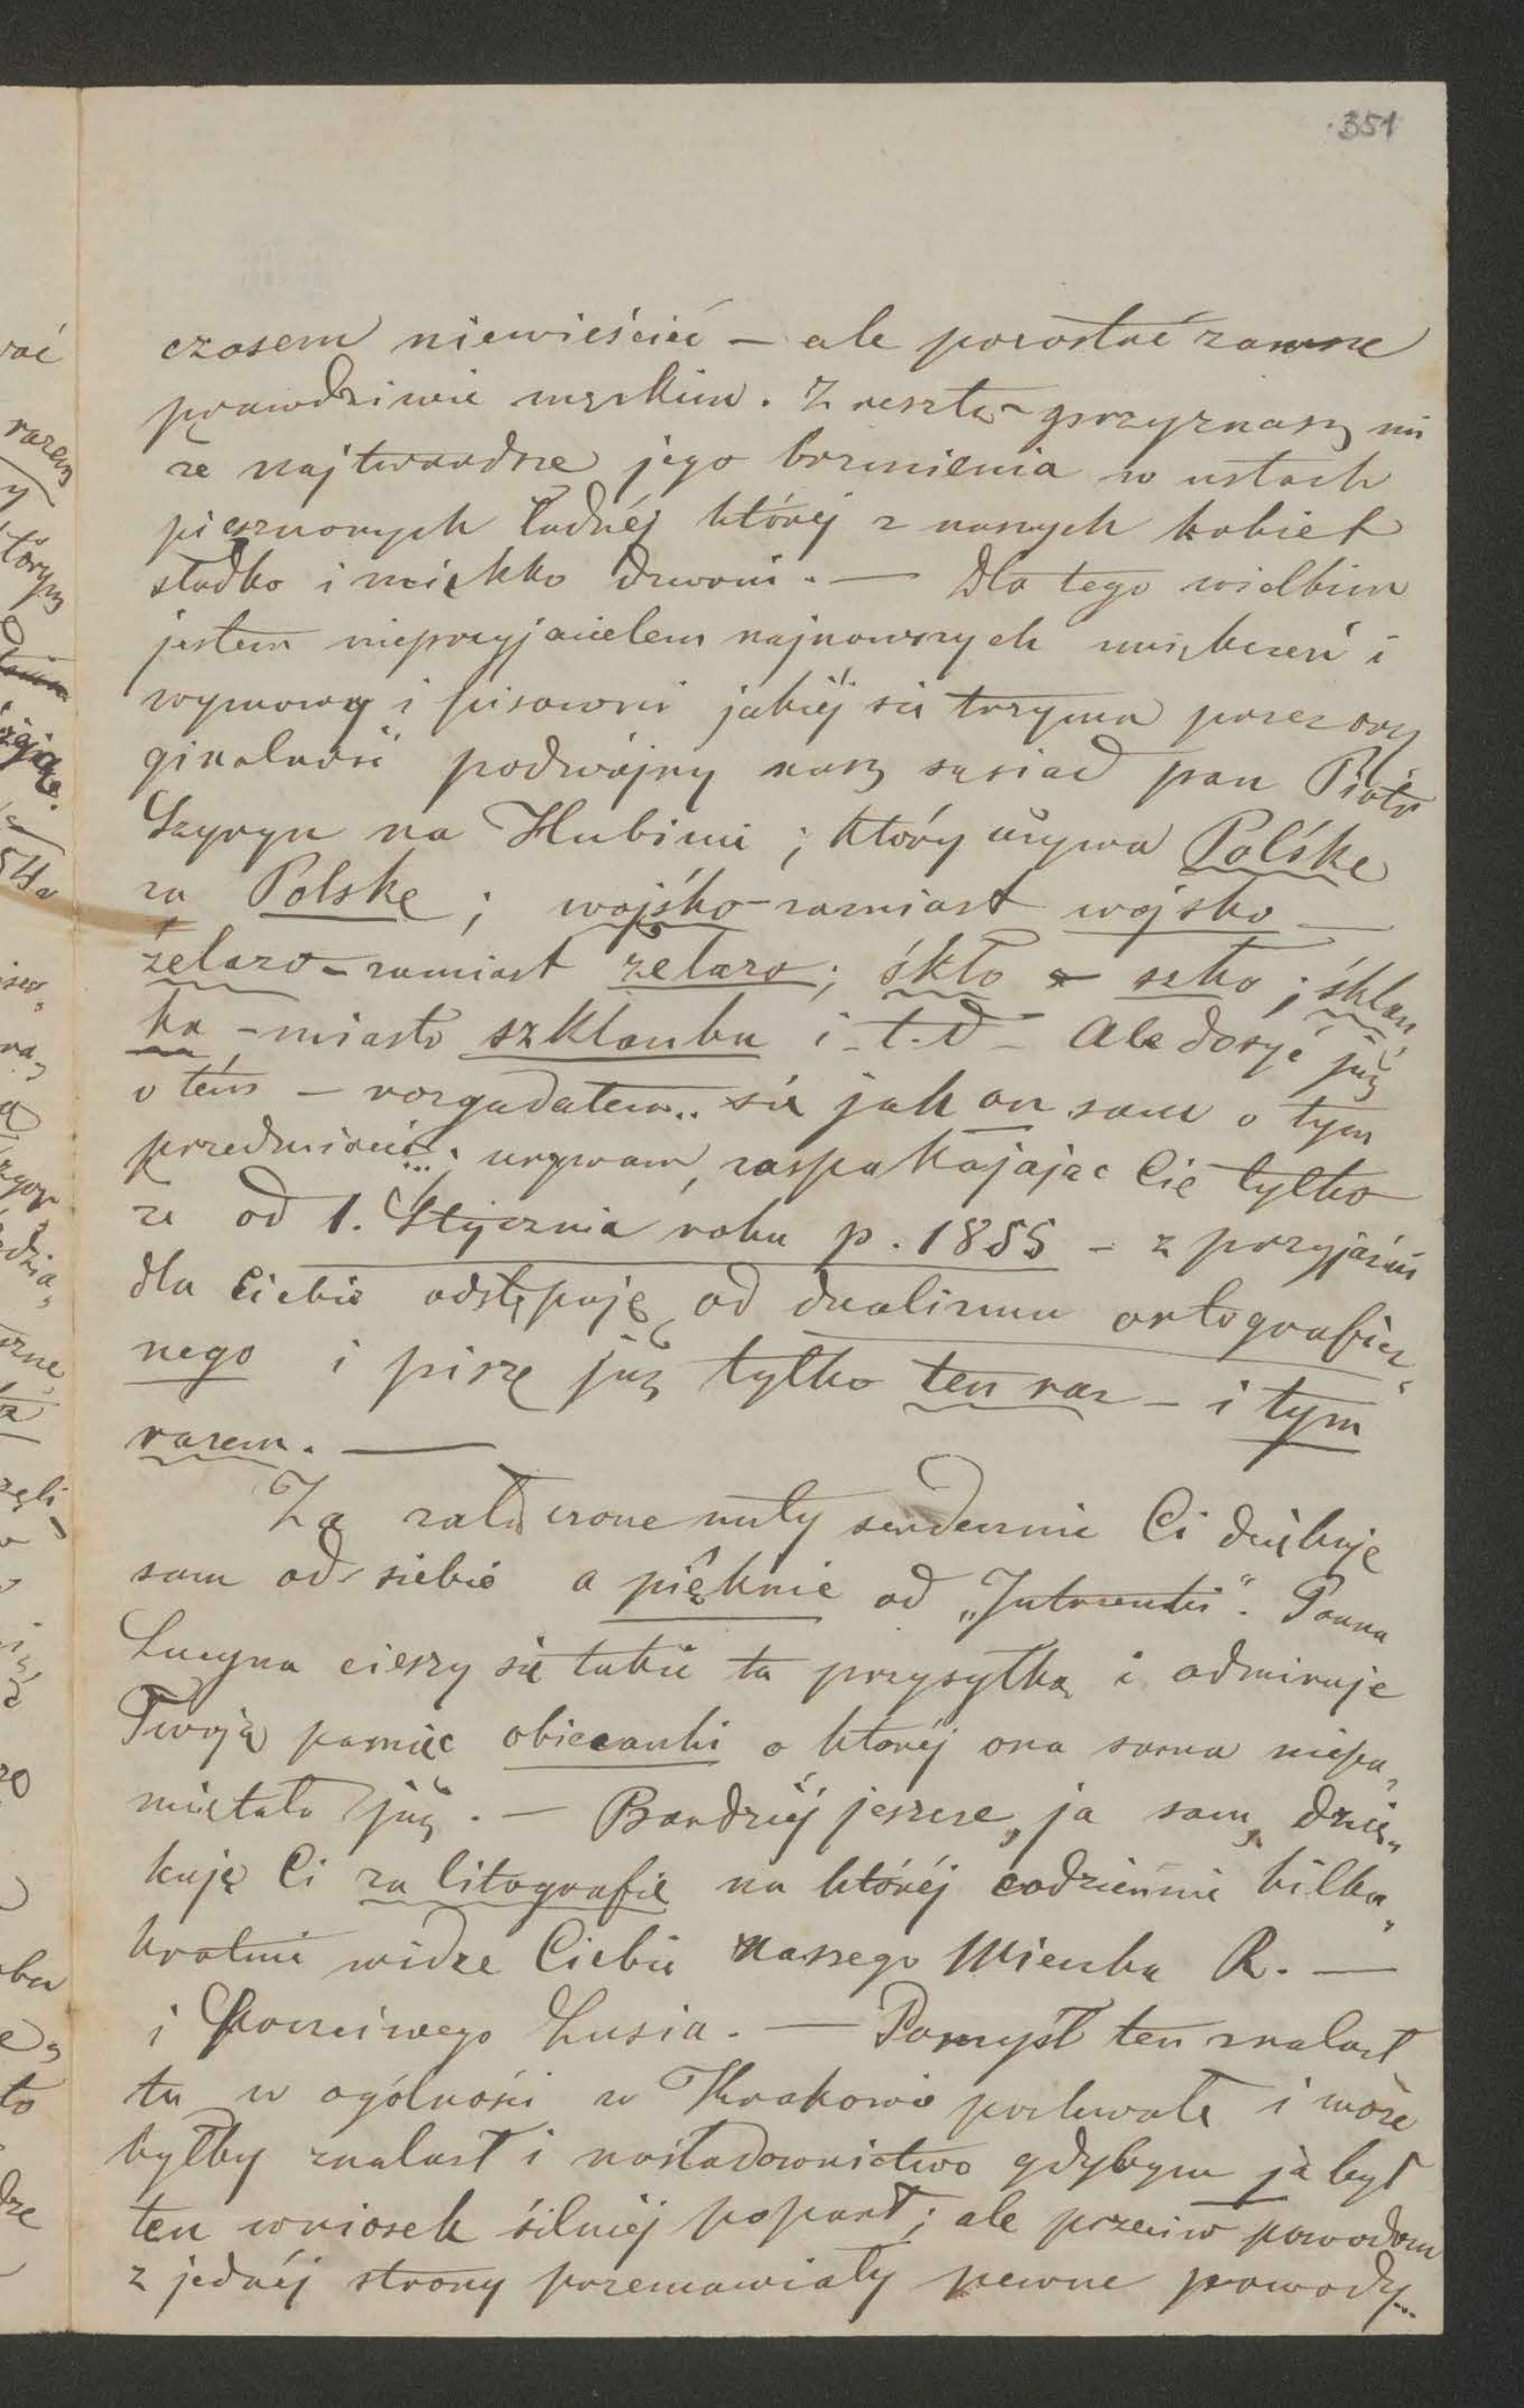 351
czasem niewieścieć – ale pozostać zawsze
prawdziwie męzkim. Z resztą – przyznasz mi
że najtwardsze jego brzmienia w ustach
pieszczonych ładnéj któréj z naszych kobiet
słodko i miękko dzwoni. — Dla tego wielkim
jestem nieprzyjacielem najnowszych zmiękczeń i
wymowy i pisowni jakiéj się trzyma przez ory
ginalność podwójny nasz sąsiad pan Piotr
na ; który używa Polśkę
za Polskę ; wojśko – zamiast wojsko —
źelazo – zamiast żelazo ; śkło a szkło ; śklan
ka – miasto szklanka i t. d – Ale dosyć już
o tém – rozgadałem.. się jak on sam o tym
przedmiocie... ; urywam, zaspakajając Cię tylko
że od 1. Stycznia roku p. 1855 – z przyjaźni
dla Ciebie odstępuję od dualizmu ortograficz-
nego i piszę już tylko ten raz – i tym
razem. —
Za załączone nuty serdecznie Ci dziękuję
sam od siebie a pięknie od „Jutrzenki". Panna
Lucyna cieszy się także tą przysyłką i admiruje
Twoją pamięć obiecanki o któréj ona sama niepa-
miętała już. — Bardziéj jeszcze, ja sam, dzię-
kuję Ci za litografię na któréj codziennie kilka-
krotnie widzę Ciebie naszego Mienka R. —
i poczciwego Lusia. — Pomysł ten znalazł
tu w ogólności w Krakowie pochwałę i może
byłby znalazł i naśladownictwo gdybym ja był
ten wniosek silniéj poparł ; ale przeciw powodom
z jednéj strony przemawiały pewne powody...